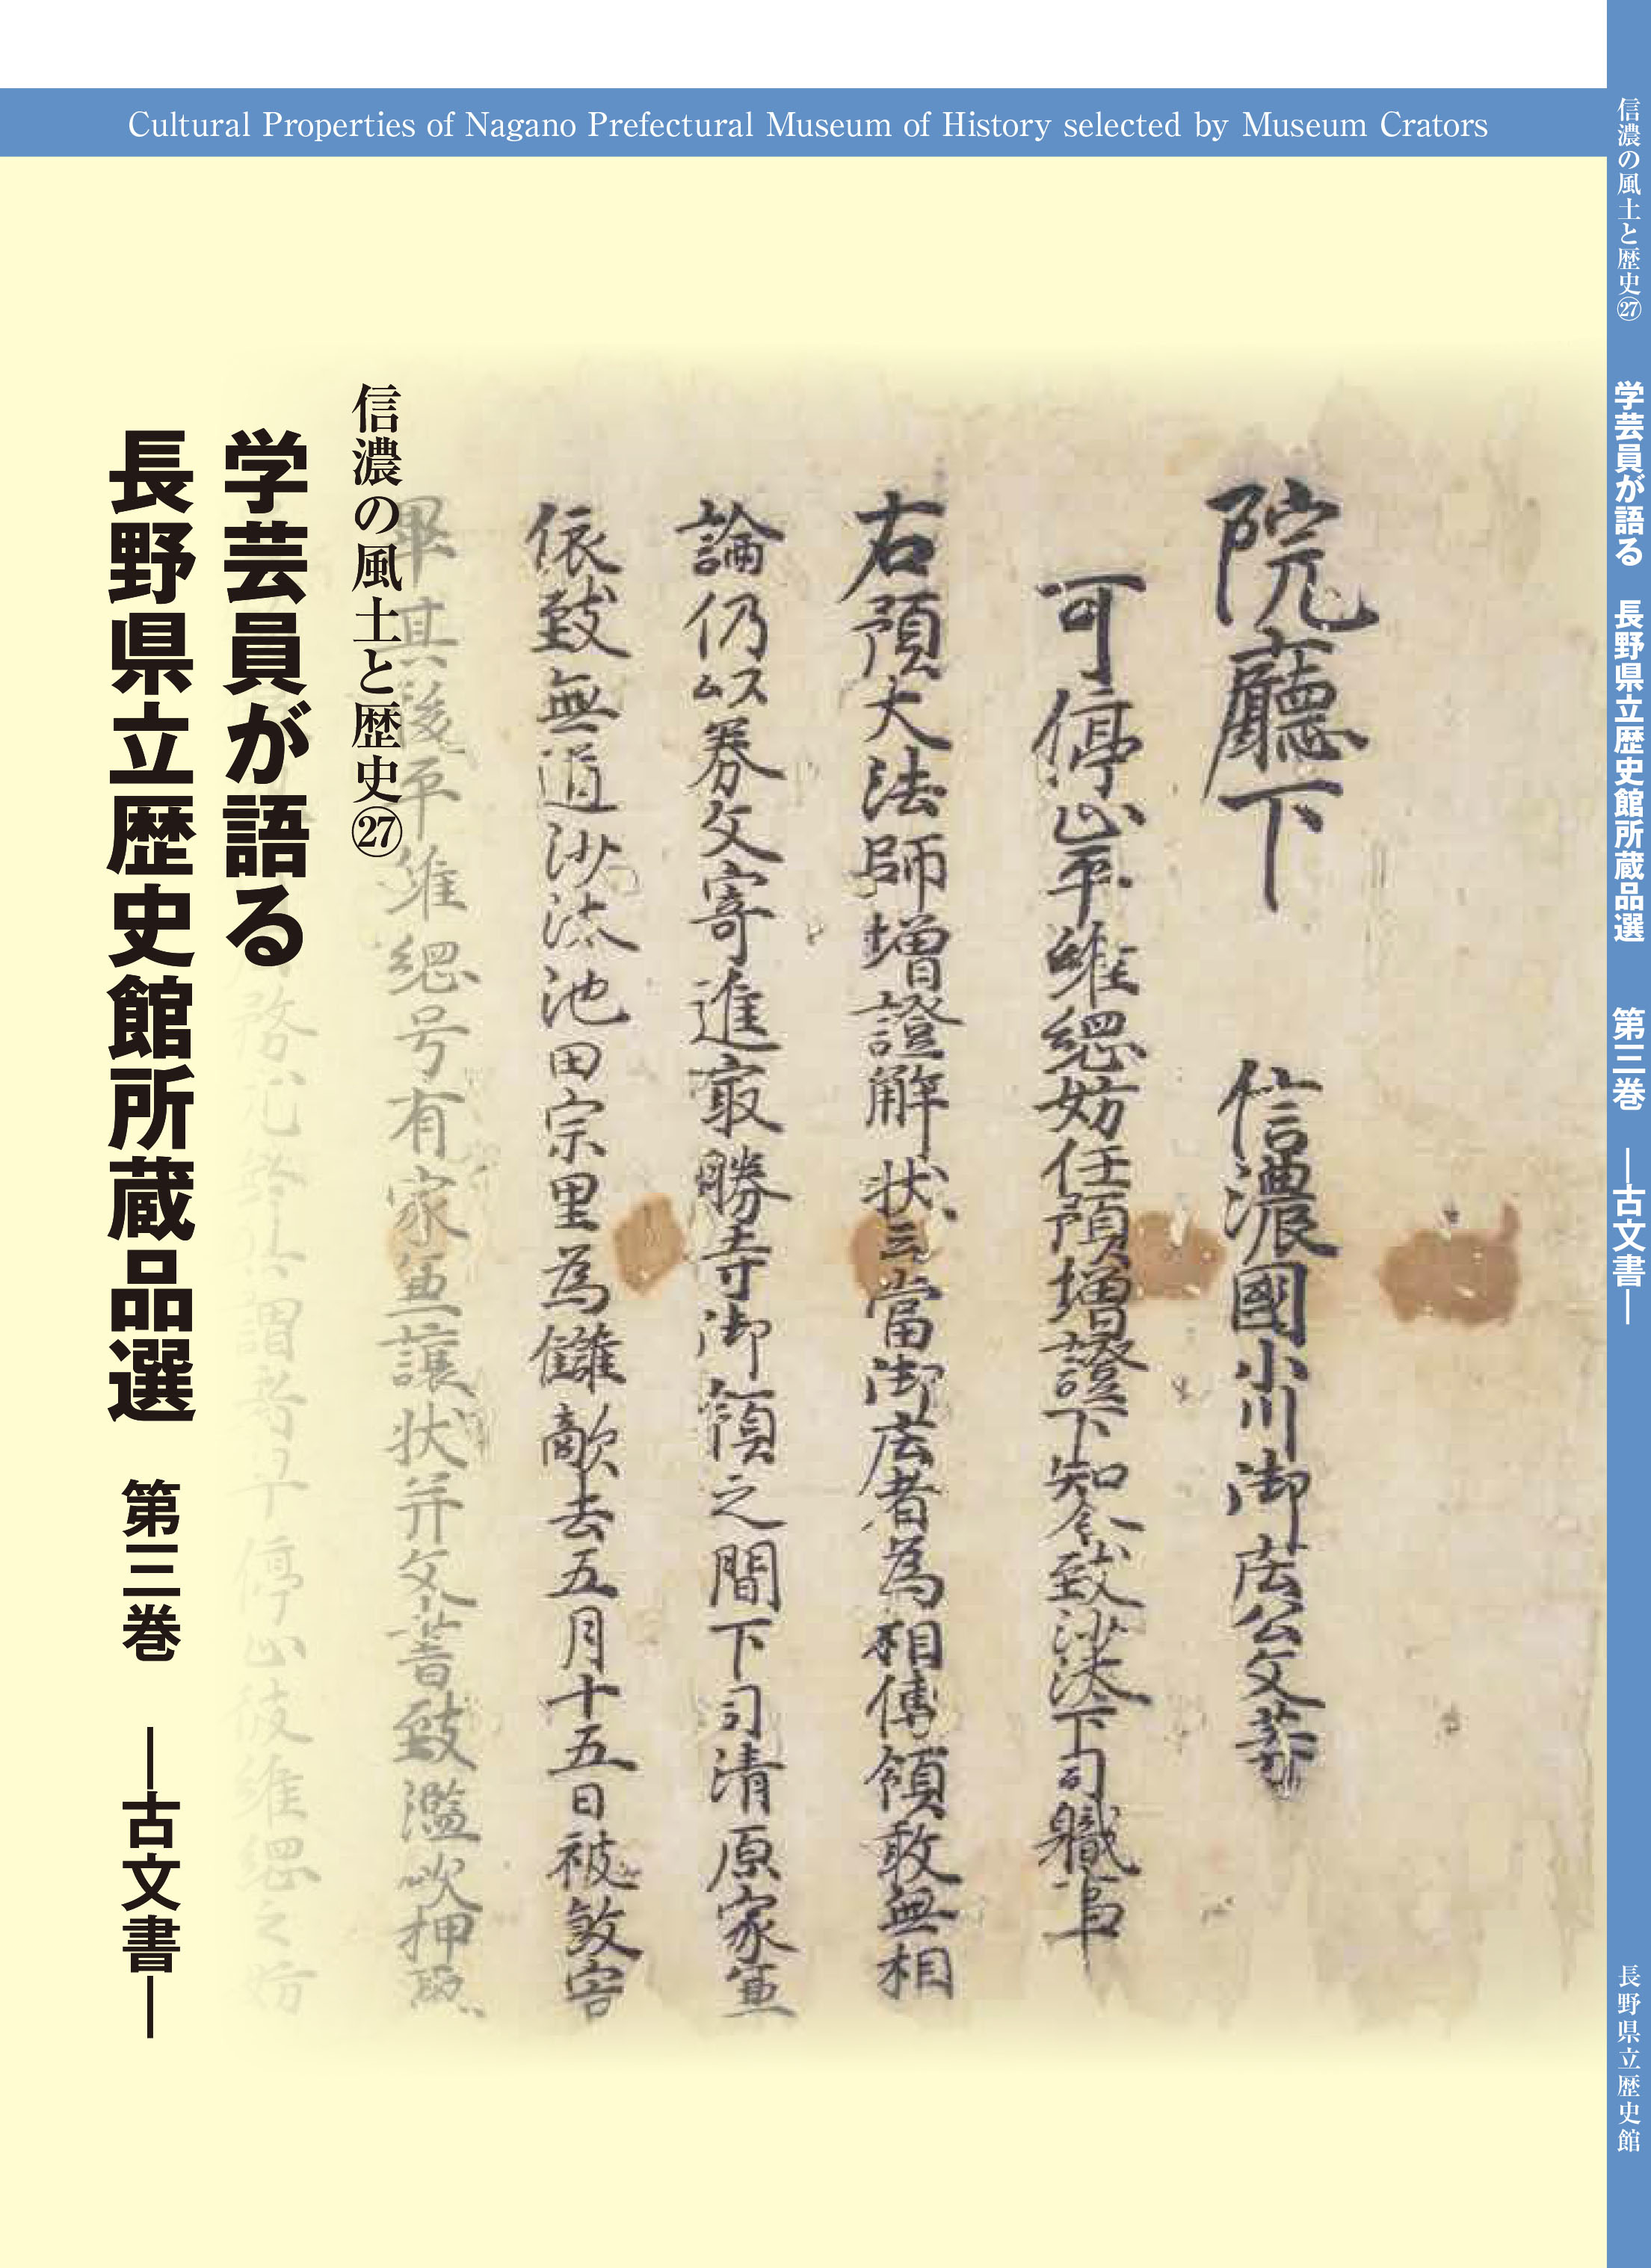 Cultural Properties of Nagano Prefectural Museum of History selected by Museum Crators
信濃の風土と歴史㉗ 学芸員が語る 長野県立歴史館所蔵品選 第三巻 ―古文書― 長野県立歴史館
院廳下 信濃國小川御庄公文等
可停止平維綱妨任預増證下知令致沙汰下司職事
右預大法師増證解状云當御庄者為相傳領敢無相
論仍以券文寄進最勝寺御領之間下司清原家兼
依致無道沙汰池田宗里為讎敵去五月十五日被敓害
畢其後平維綱号有家兼譲状并文書致濫吹押
停止彼維綱之妨
信濃の風土と歴史㉗
学芸員が語る
長野県立歴史館所蔵品選 第三巻 ―古文書―